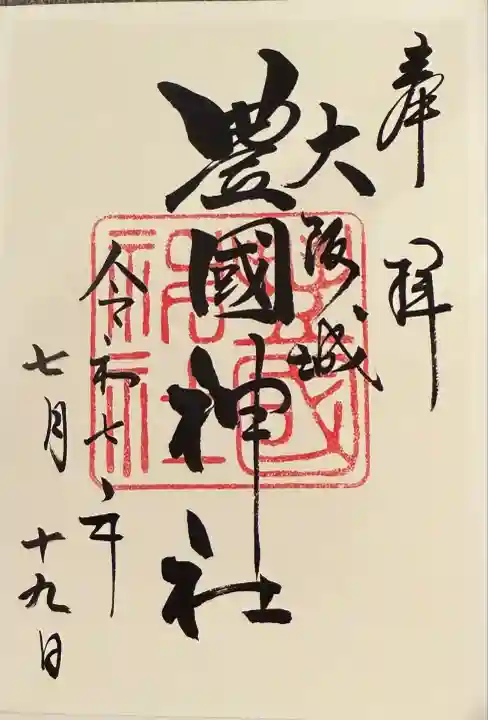 奉拝
大阪城
豊國神社
令和七年
七月十九日